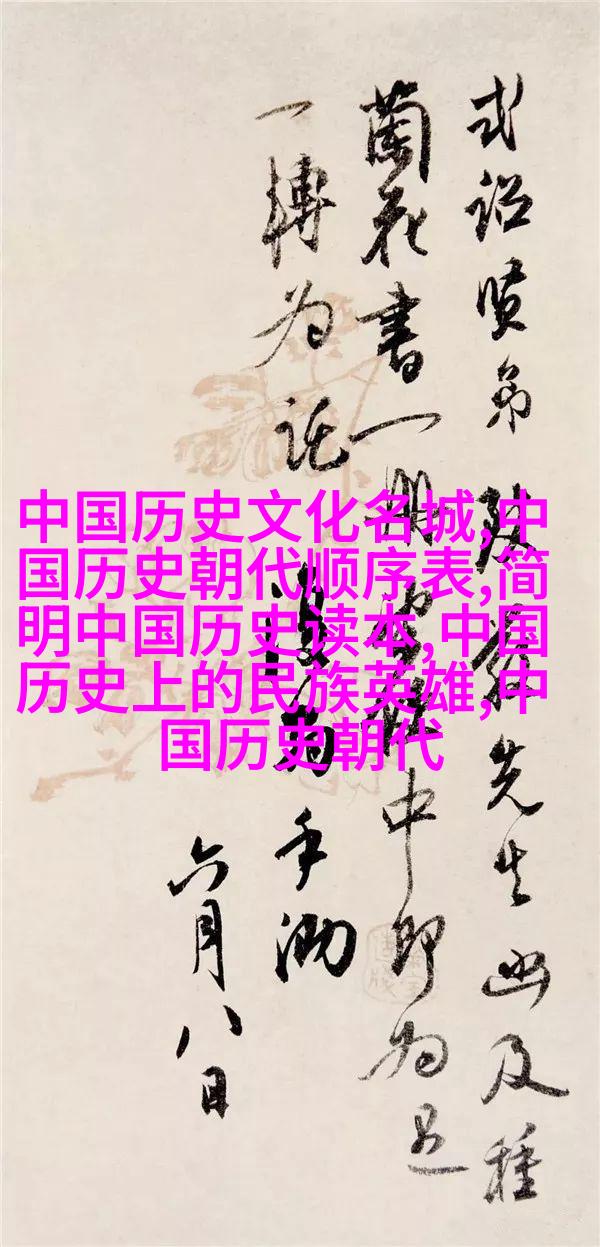 中国历史文化名城,中
国历史朝代顺序表,简
明中国历史读本,中国
历史上的民族英雄,中
国历史朝代
賢弟 先生函及種
蘭花書一册 中即为
一轉为託 手泐
六月八日